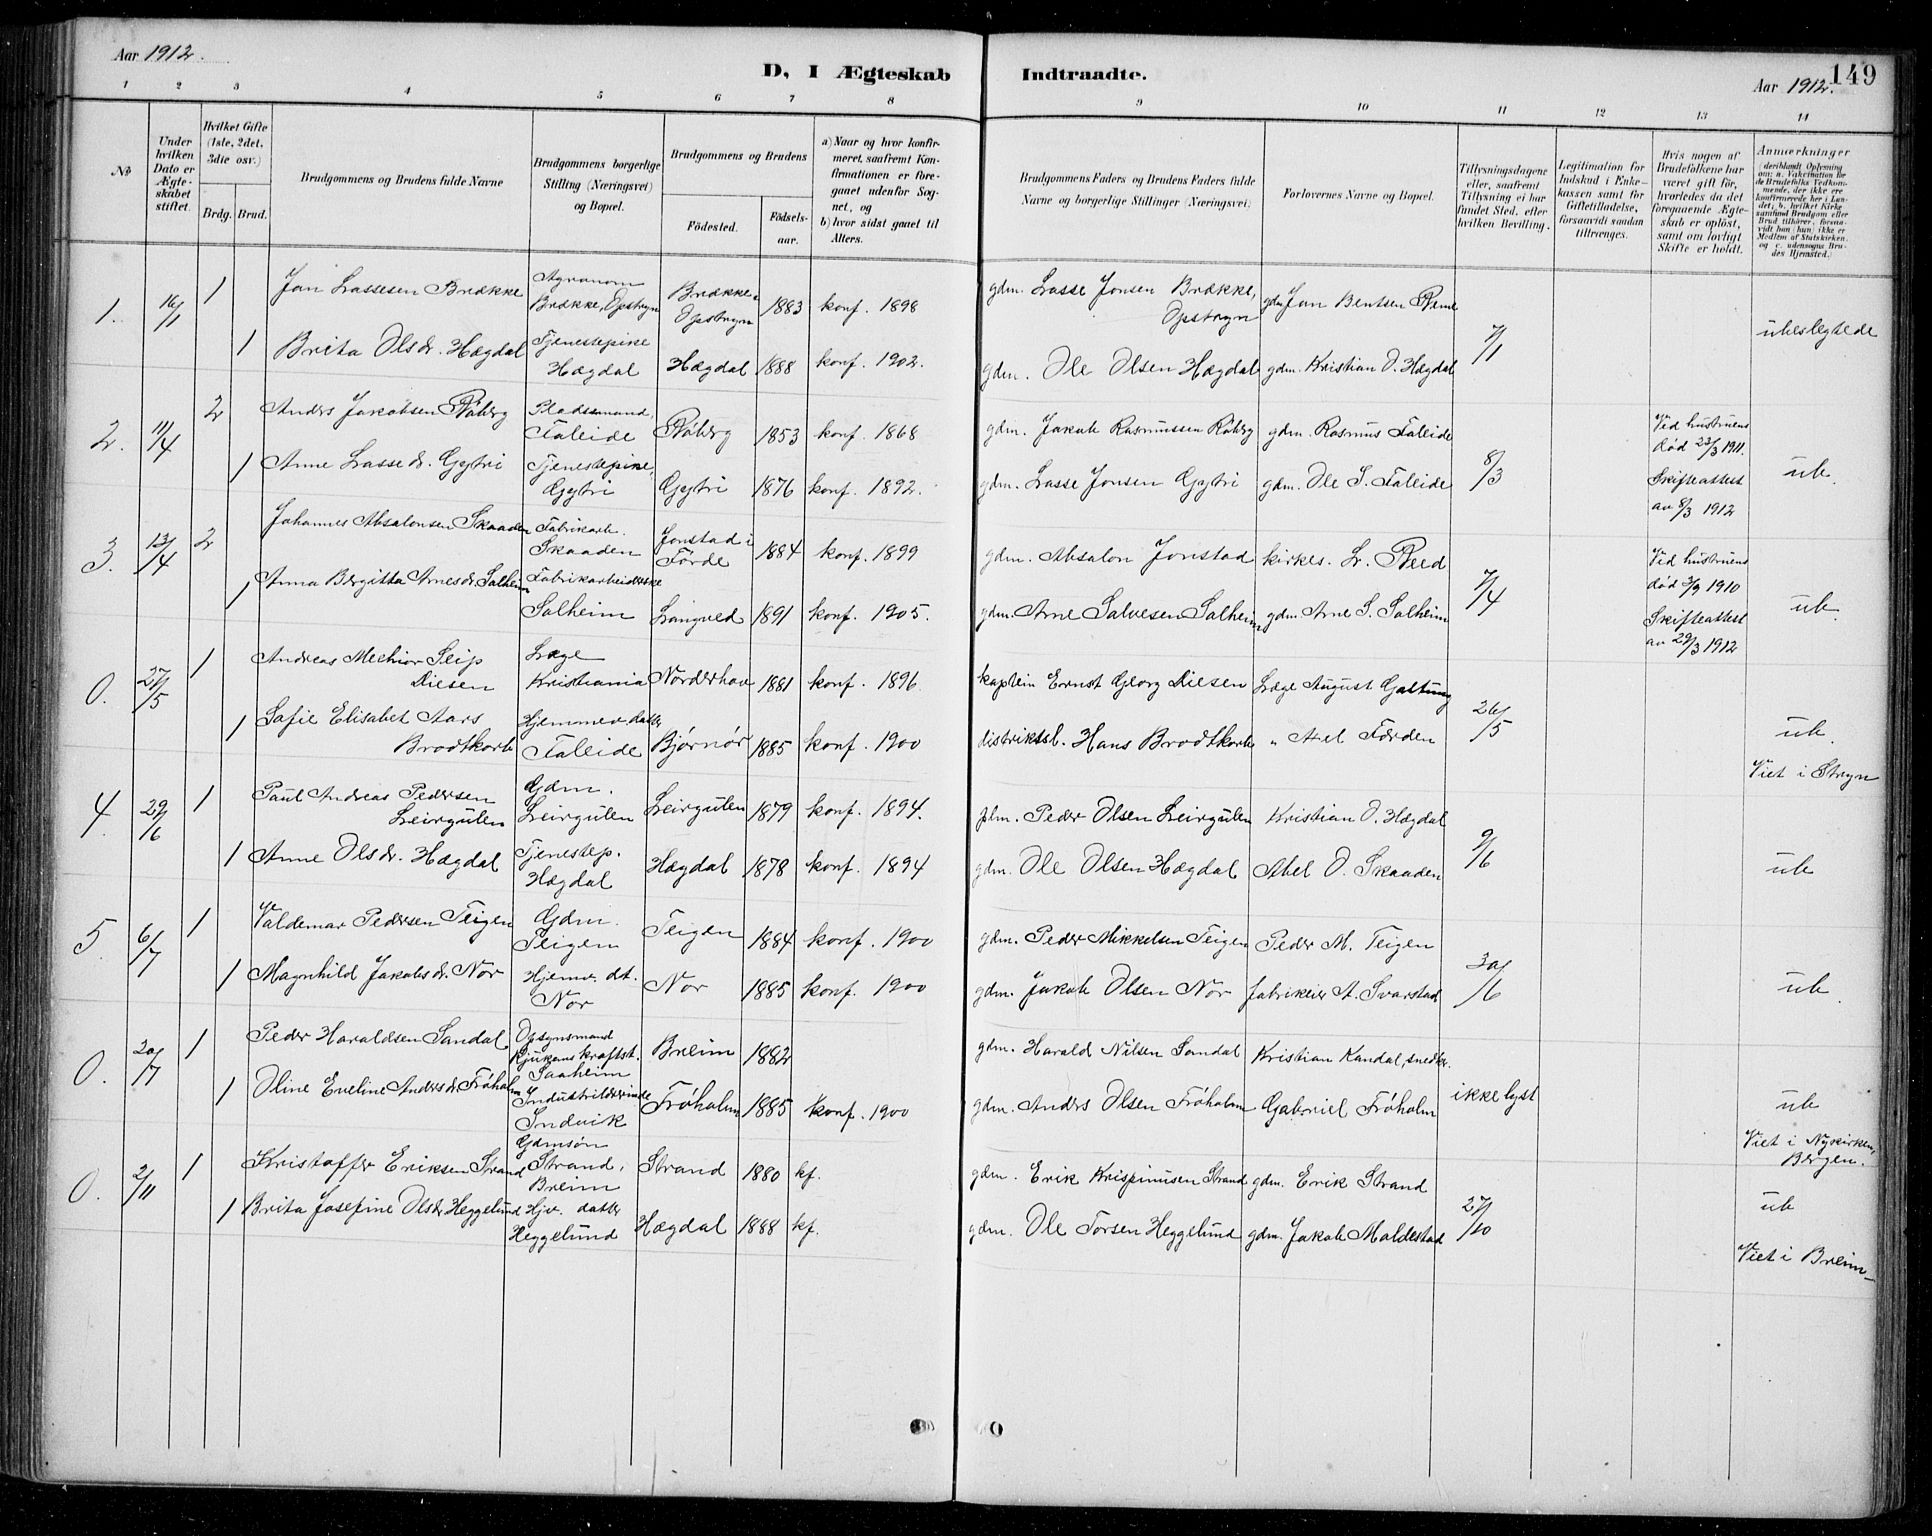 Aar 1912.
D, I Ægteskab Indtraadte.
149
Aar 1912.
1 2 3 4 5 6 7 8 9 10 11 12 13 14
No
Under hvilken Dato er Ægteskabet stiftet.
Hvilket Gifte (1ste, 2det, 3die osv.)
Brdg. Brud.
Brudgommens og Brudens fulde Navne
Brudgommens borgerlige Stilling (Næringsvei) og Bopæl.
Brudgommens og Brudens
Fødested.
Fødselsaar.
a) Naar og hvor konfirmeret, saafremt Konfirmationen er foregaaet udenfor Sognet, og
b) hvor sidst gaaet til Alters.
Brudgommens Faders og Brudens Faders fulde Navne og borgerlige Stillinger (Næringsvei)
Forlovernes Navne og Bopæl.
Tillysningsdagene eller, saafremt Tillysning ei har fundet Sted, efter hvilken Bevilling.
Legitimation for Indskud i Enkekassen samt for Giftetilladelse, forsaavidt saadan tiltrænges.
Hvis nogen af Brudefolkene har været gift før, hvorledes da det foregaaende Ægteskab er opløst, samt om lovligt Skifte er holdt.
Anmærkninger (deriblandt Oplysning om: a. Vakcination for de Brudefolks Vedkommende, der ikke ere konfirmerede her i Landet; b. hvilket Kirkesamfund Brudgom eller Brud tilhører, forsaavidt han (hun) ikke er Medlem af Statskirken, og c. udensogns Brudes Hjemsted.)
1. 16/1 1 Jon Lassesen Brække Agronom Brække, Opstryn Brække, Opstryn 1883 konf. 1898 gdm. Lasse Jonsen Brække, Opstryn gdm Jon Bentsen
1 Brita Olsdr. Hægdal Tjenestepike Hægdal Hægdal 1888 konf. 1902. gdm. Ole Olsen Hægdal gdm. Kristian O. Hægdal 7/1 ubeslegtede
2. 11/4 2 Anders Jakobsen Råberg Pladsemand, Faleide Råberg 1853 konf. 1868 gdm. Jakob Rasmussen Råberg gdm. Rasmus Faleide Ved hustruens død 23/3 1911.
1 Anne Lassedr. Gytri Tjenestepike, Gytri Gytri 1876 konf. 1892. gdm. Lasse Jonsen Gytri gdm. Ole S. Faleide 8/3 Skifteattest av 8/3 1912 ub.
3. 13/4 2 Johannes Absalonsen Skaaden Fabrikarb. Skaaden Jonstad i Førde 1884 konf. 1899 gdm. Absalon Jonstad kirkes. L. Reed Ved hustruens død 3/9 1910
1 Anna Bergitta Arnesdr. Solheim Fabrikarbeiderske Solheim Langved 1891 konf. 1905. gdm. Arne Salvesen Solheim gdm. Arne S. Solheim 7/4 Skifteattest av 29/3 1912 ub.
0. 27/5 1 Andreas Mechior Seip Diesen Læge Kristiania Norderhov 1881 konf. 1896. kaptein Ernst Georg Diesen Læge August Galtung
1 Sofie Elisabet Aars Brodtkorb Hjemmev. datter Faleide Bjørnør 1885 konf. 1900 distriktsl. Hans Brodtkorb " Axel Førden 26/5 ub. Viet i Stryn
4. 29/6 1 Paul Andreas Pedersen Leirgulen Gdm. Leirgulen Leirgulen 1879 konf. 1894. plm. Peder Olsen Leirgulen Kristian O. Hægdal
1 Anne Olsdr. Hægdal Tjenestep. Hægdal Hægdal 1878 konf. 1894 gdm. Ole Olsen Hægdal Abel O. Skaaden 9/6 ub
5. 6/7 1 Valdemar Pedersen Teigen Gdm. Teigen Teigen 1884 konf. 1900 gdm. Peder Mikkelsen Teigen Peder M. Teigen
1 Magnhild Jakobsdr. Nor Hjemv. dt. Nor Nor 1885 konf. 1900 gdm. Jakob Olsen Nor fabrikeier A. Svarstad 30/6 ub.
0. 20/7 1 Peder Haraldsen Sandal Opsynsmand Rjukans kraftst. Saaheim Breim 1882 gdm. Harald Nilsen Sandal Kristian Kandal, snedker.
1 Oline Eveline Andersdr. Frøholm Industrilærerinde Indvik Frøholm 1885 konf. 1900 gdm. Anders Olsen Frøholm Gabriel Frøholm ikke lyst ub Viet i Nykirken, Bergen.
0. 2/11 1 Kristoffer Eriksen Strand Gdmsøn Strand, Breim Strand 1880 kf. gdm. Erik Krispinusen Strand gdm. Erik Strand
1 Brita Josefine Olsdr Heggelund Hjv. datter Heggelund Hægdal 1888 kf. gdm. Ole Torsen Heggelund gdm. Jakob Maldestad 27/10 ub Viet i Breim